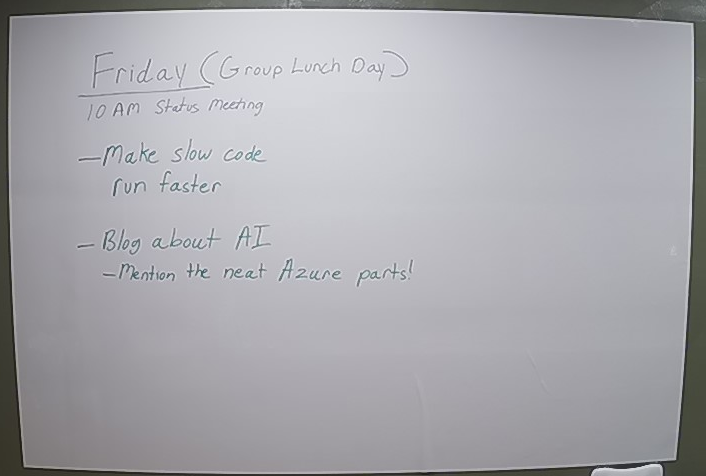 Friday (Group Lunch Day)
10 AM Status Meeting
– Make slow code
run faster
– Blog about AI
– Mention the neat Azure parts!